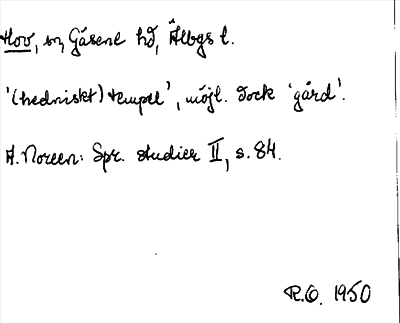 Hov, sn, Gäsene hd, Älbgs l.
'(hedniskt) tempel', möjl. dock 'gård'.
A. Noreen: Spr. studier II, s. 84.
R.O. 1950